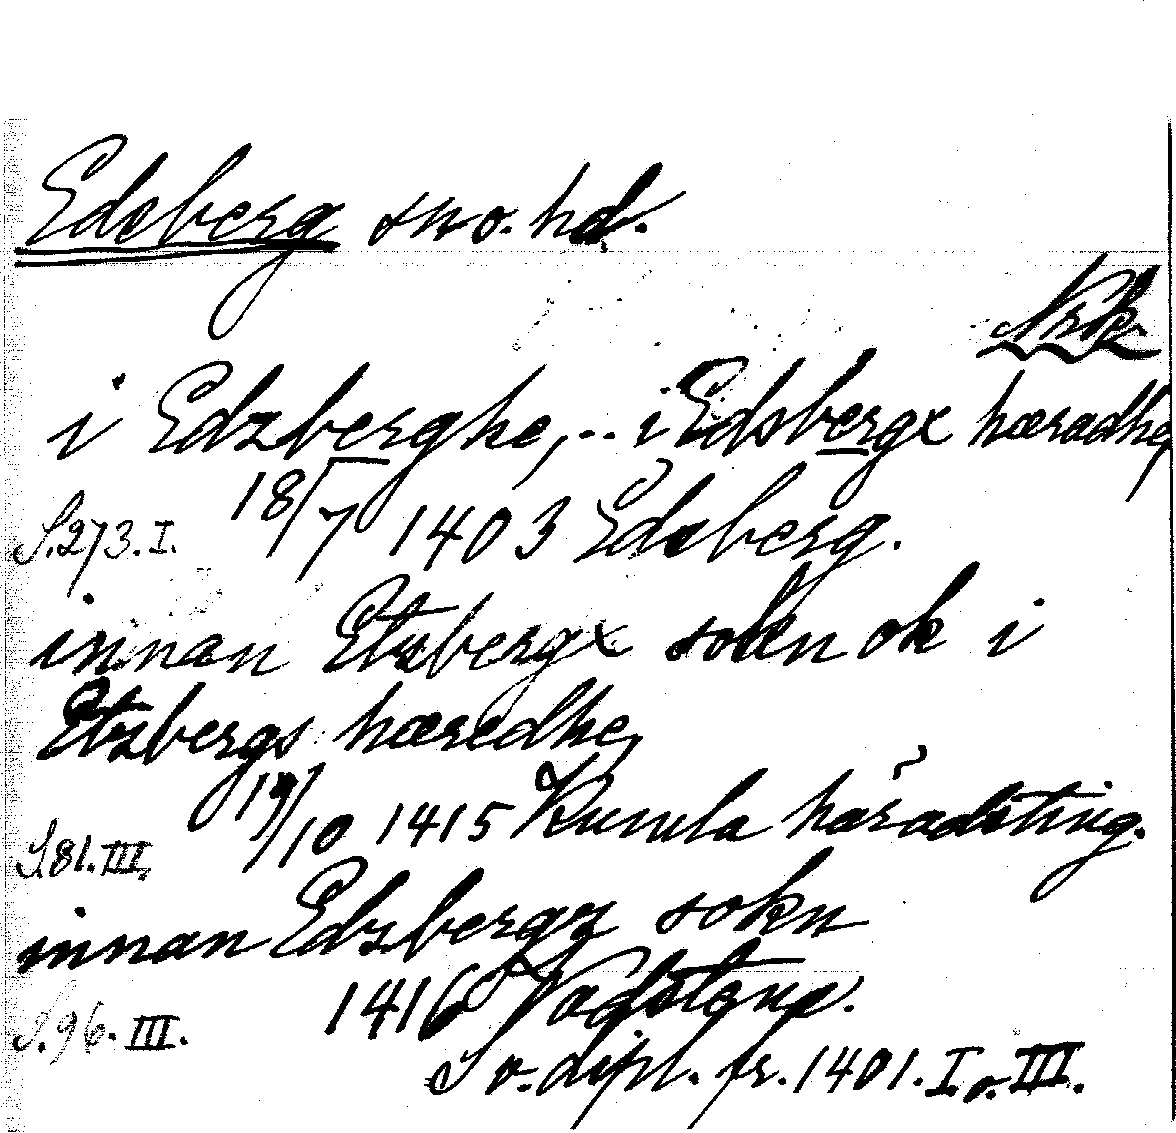 Edsberg sn o. hd.
Nrk
i Edzberghe, .. i Edsbergx hæradhe,
S. 273. I. 18/7 1403 Edsberg.
innan Etzbergx sokn ok i
Etzbergs hæredhe,
S. 81. III. 19/10 1415 Kumla häradsting.
innan Edzbergz sokn
S. 96. III. 1416 Vadstena.
Sv. dipl. fr. 1401. I. o. III.